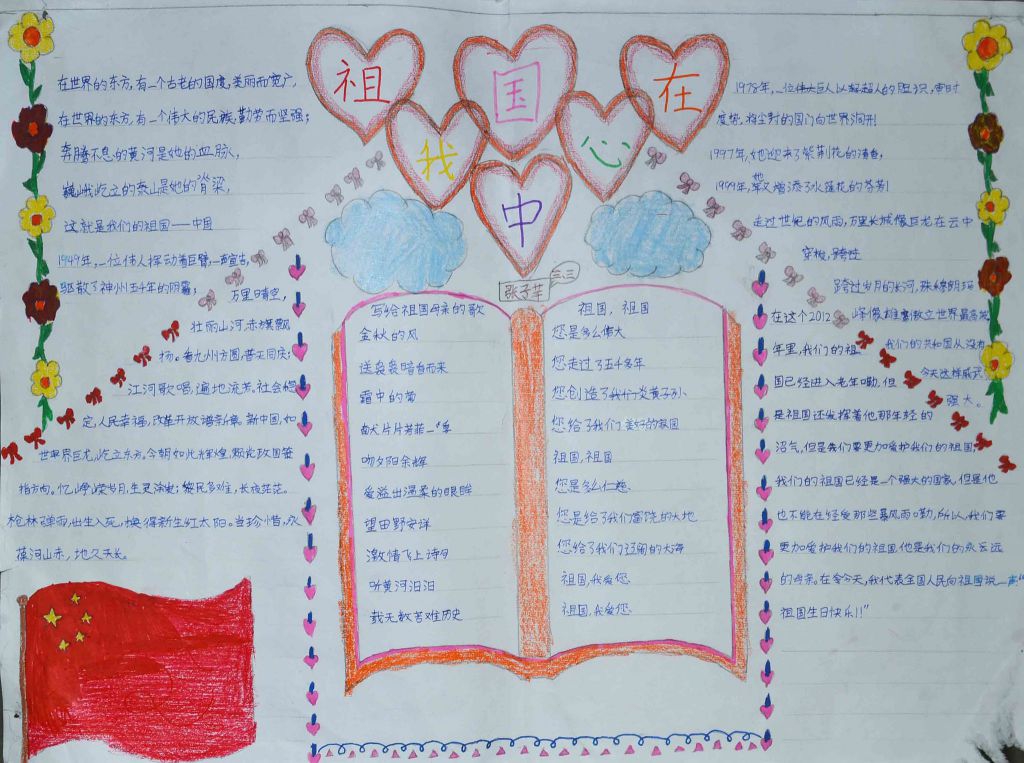 祖国在
我心
中
三、三
在世界的东方,有一个古老的国度,美丽而宽广,
在世界的东方,有一个伟大的民族,勤劳而坚强;
奔腾不息的黄河是她的血脉,
巍峨屹立的泰山是她的脊梁,
这就是我们的祖国——中国
1949年,一位伟人挥动着巨臂,一声宣告,
驱散了神州五千年的阴霾;
万里晴空,
壮丽山河,赤旗飘
扬。看九州方圆,普天同庆;
江河歌唱,遍地流芳。社会稳
定,人民幸福,改革开放谱新章。新中国,如
世界巨龙,屹立东方。今朝如此辉煌,
指方向。忆峥嵘岁月,生灵涂炭;黎民多难,长夜茫茫。
枪林弹雨,出生入死,换得新生红太阳。当珍惜,永
葆河山赤,地久天长。
写给祖国母亲的歌
金秋的风
送袅袅暗香而来
霜中的菊
献片片芳菲一
吻夕阳余辉
爱溢出温柔的眼眸
望田野安详
激情飞上诗
听黄河汩汩
载无数苦难历史
祖国,祖国
您是多么伟大
您走过了五千多年
您创造了我们炎黄子孙
您给了我们美好的家园
祖国,祖国
您是多么仁慈
您是给了我们富饶的大地
您给了我们辽阔的大海
祖国,我爱您
祖国,我爱您
1978年,一位伟大巨人以超人的胆识,审时
度势,将尘封的国门向世界洞开
1997年,她迎来了紫荆花的清香,
1999年,她又增添了水莲花的芬芳
走过世纪的风雨,万里长城像巨龙在云中
穿梭,跨过
跨过岁月的长河,珠穆朗玛
峰傲雄
立世界最高
我们的共和国从没有
今天这样威武
强大。
在这个2012
年里,我们的祖
国已经进入老年嘞,但
是祖国还发挥着他那年轻的
活气,但是我们要更加爱护我们的祖国;
我们的祖国已经是一个强大的国家,但是他
也不能在经受那些暴风雨嘞,所以,我们要
更加爱护我们的祖国,他是我们的永远
的母亲。在今天,我代表全国人民向祖国说一声“
祖国生日快乐!!”